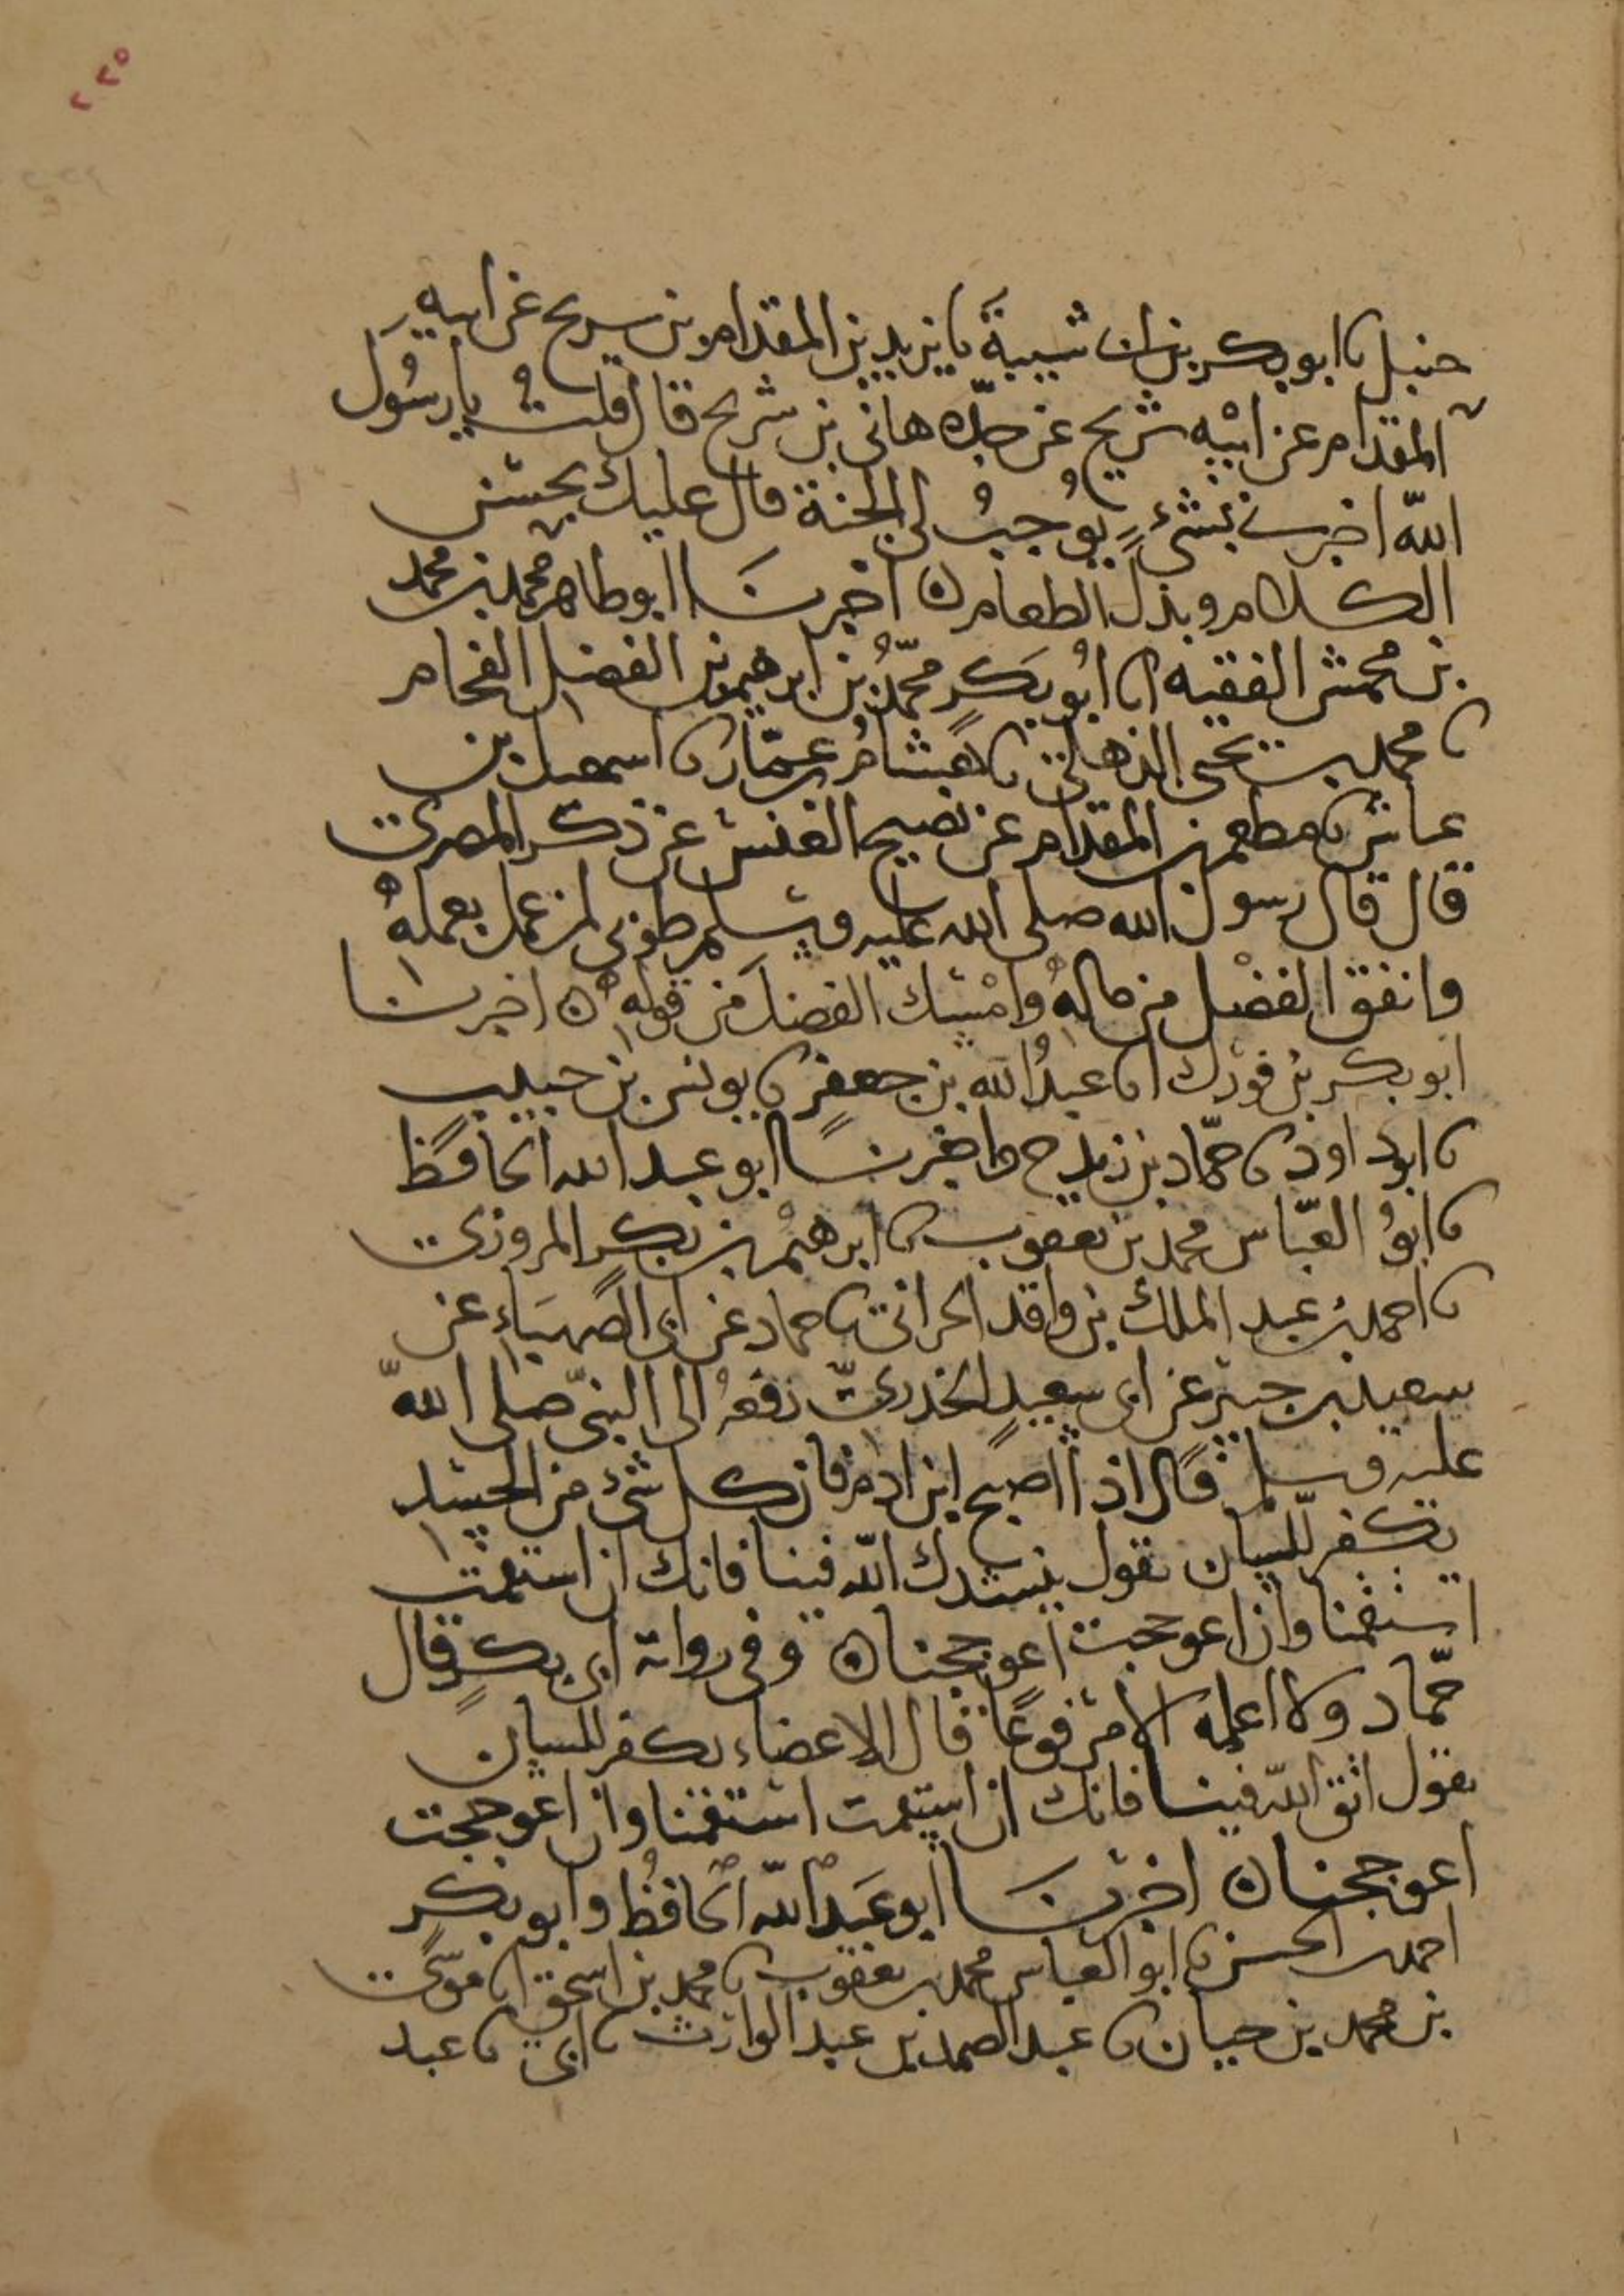 ٢٢٥
حنبل نا ابو بكر بن ابي شيبة نا يزيد بن المقدام بن شريح عن ابيه
المقدام عن ابيه شريح عن جده هاني بن شريح قال قلت يا رسول
الله اخبرني بشيء يوجب لي الجنة قال عليك بحسن
الكلام وبذل الطعام ه اخبرنا ابو طاهر محمد بن محمد
بن محمش الفقيه انا ابو بكر محمد بن ابرهيم بن الفضل الفحام
نا محمد بن يحيى الذهلي نا هشام بن عمار نا اسمعيل بن
عياش نا مطعم بن المقدام عن نصيح العنسي عن ذكر المصري
قال قال رسول الله صلى الله عليه وسلم طوبى لمن عمل بعمله
وانفق الفضل من ماله وامسك الفضل من قوله ه اخبرنا
ابو بكر بن فورك انا عبد الله بن جعفر نا يونس بن حبيب
نا ابو داود نا حماد بن زيد ح واخبرنا ابو عبد الله الحافظ
نا ابو العباس محمد بن يعقوب نا ابرهيم بن بكر المروزي
نا احمد بن عبد الملك بن واقد الحراني نا حماد عن ابي الصهباء عن
سعيد بن جبير عن ابي سعيد الخدري رفعه الى النبي صلى الله
عليه وسلم قال اذا اصبح ابن ادم فان كل شيء من الجسد
يكفر للسان تقول ننشدك الله فينا فانك ان استقمت
استقمنا وان اعوججت اعوججنا ه وفي رواية ابي بكر قال
حماد ولا اعلمه الا مرفوعا قال الاعضاء تكفر للسان
تقول اتق الله فينا فانك ان استقمت استقمنا وان اعوججت
اعوججنا ه اخبرنا ابو عبد الله الحافظ وابو بكر
احمد بن الحسن نا ابو العباس محمد بن يعقوب نا محمد بن اسحق انا موسى
بن محمد بن حيان نا عبد الصمد بن عبد الوارث نا ابي نا عبد